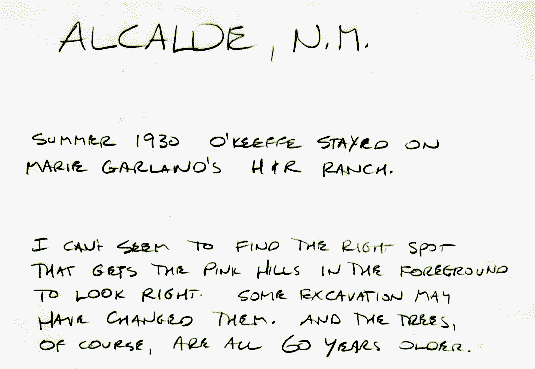 ALCALDE, N.M.
SUMMER 1930 O'KEEFFE STAYED ON
MARIE GARLAND'S H & R RANCH.
I CAN'T SEEM TO FIND THE RIGHT SPOT
THAT GETS THE PINK HILLS IN THE FOREGROUND
TO LOOK RIGHT. SOME EXCAVATION MAY
HAVE CHANGED THEM. AND THE TREES,
OF COURSE, ARE ALL 60 YEARS OLDER.